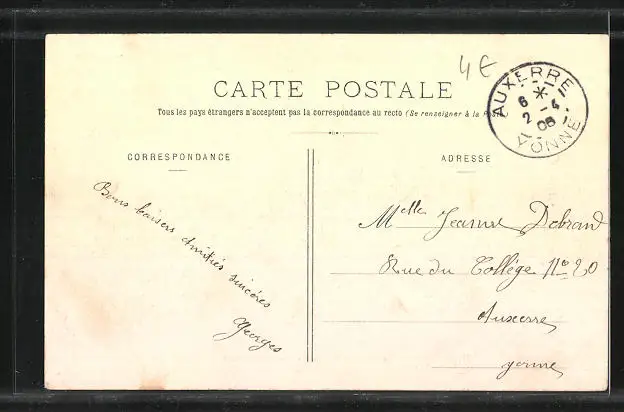 4€
CARTE POSTALE
Tous les pays étrangers n'acceptent pas la correspondance au recto (Se renseigner à la Poste)
AUXERRE
6 *
2 - 4
08
YONNE
CORRESPONDANCE
ADRESSE
Bons baisers amitiés sincères
Georges
Melle Jeanne Debrand
Rue du Collège No 20
Auxerre
Yonne